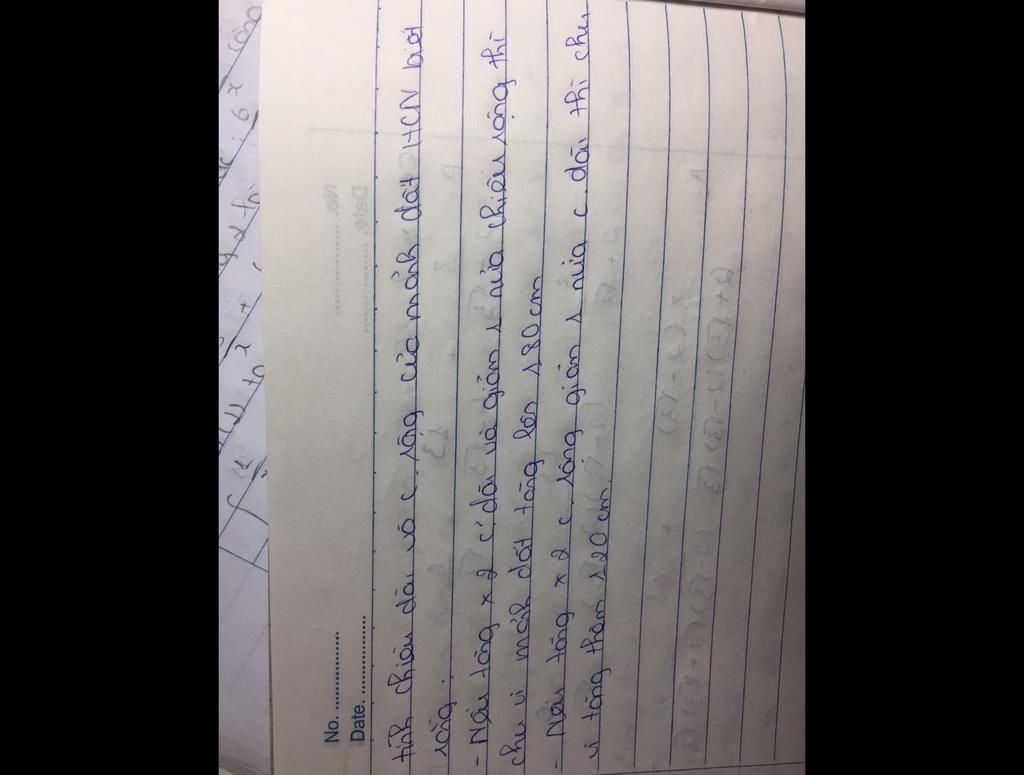 No. ................
Date. ................
tính chiều dài và c. rộng của mảnh đất HCN biết
rằng.
- Nếu tăng x 2 c. dài và giảm 1 nửa chiều rộng thì
chu vi mảnh đất tăng lên 180 cm
- Nếu tăng x 2 c. rộng giảm 1 nửa c. dài thì chu
vi tăng thêm 120 cm.